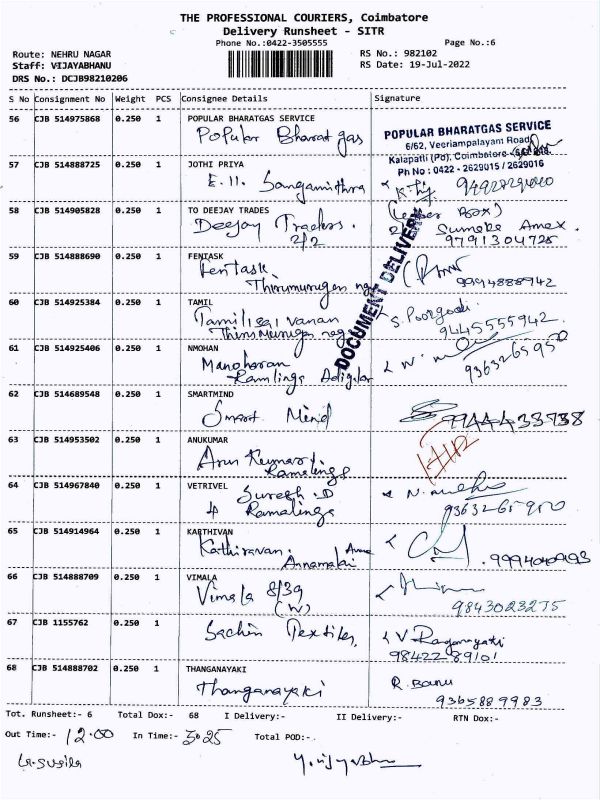 THE PROFESSIONAL COURIERS, Coimbatore
Delivery Runsheet - SITR
Phone No.:0422-3505555 Page No.:6
Route: NEHRU NAGAR RS No.: 982102
Staff: VIJAYABHANU RS Date: 19-Jul-2022
DRS No.: DCJB98210206
S No Consignment No Weight PCS Consignee Details Signature
56 CJB 514975868 0.250 1 POPULAR BHARATGAS SERVICE
Popular Bharat gas
POPULAR BHARATGAS SERVICE
6/62, Veeriampalayam Road
Kalapatti (PO), Coimbatore
Ph No : 0422 - 2629015 / 2629016
57 CJB 514888725 0.250 1 JOTHI PRIYA
E.11. Sangamithra
58 CJB 514905828 0.250 1 TO DEEJAY TRADES
Deejay Traders.
2/2
9791304725
DOCUMENT DELIVERY
59 CJB 514888690 0.250 1 FENTASK
Fentask
Thirumurugan 9994888942
60 CJB 514925384 0.250 1 TAMIL
Tamilisai vanan S. Poorgodi
Thirumurugan nagar 9445555942
61 CJB 514925406 0.250 1 NMOHAN
Manoharan
Ramlinga Adigalar 9363265950
62 CJB 514689548 0.250 1 SMARTMIND
Smart Mind 7944433738
63 CJB 514953502 0.250 1 ANUKUMAR
Arun Kumar
Ramalinga
64 CJB 514967840 0.250 1 VETRIVEL
Suresh .D
Ramalinga 9363265950
65 CJB 514914964 0.250 1 KARTHIVAN
Kathiravan.
Annamalai
66 CJB 514888709 0.250 1 VIMALA
Vimala 8/39
(W) 9843023275
67 CJB 1155762 0.250 1
Sachin Textiles
98422 89101
68 CJB 514888702 0.250 1 THANGANAYAKI
Thanganayaki R. Banu
9365889983
Tot. Runsheet:- 6 Total Dox:- 68 I Delivery:- II Delivery:- RTN Dox:-
Out Time:- 12.00 In Time:- 3.25 Total POD:-